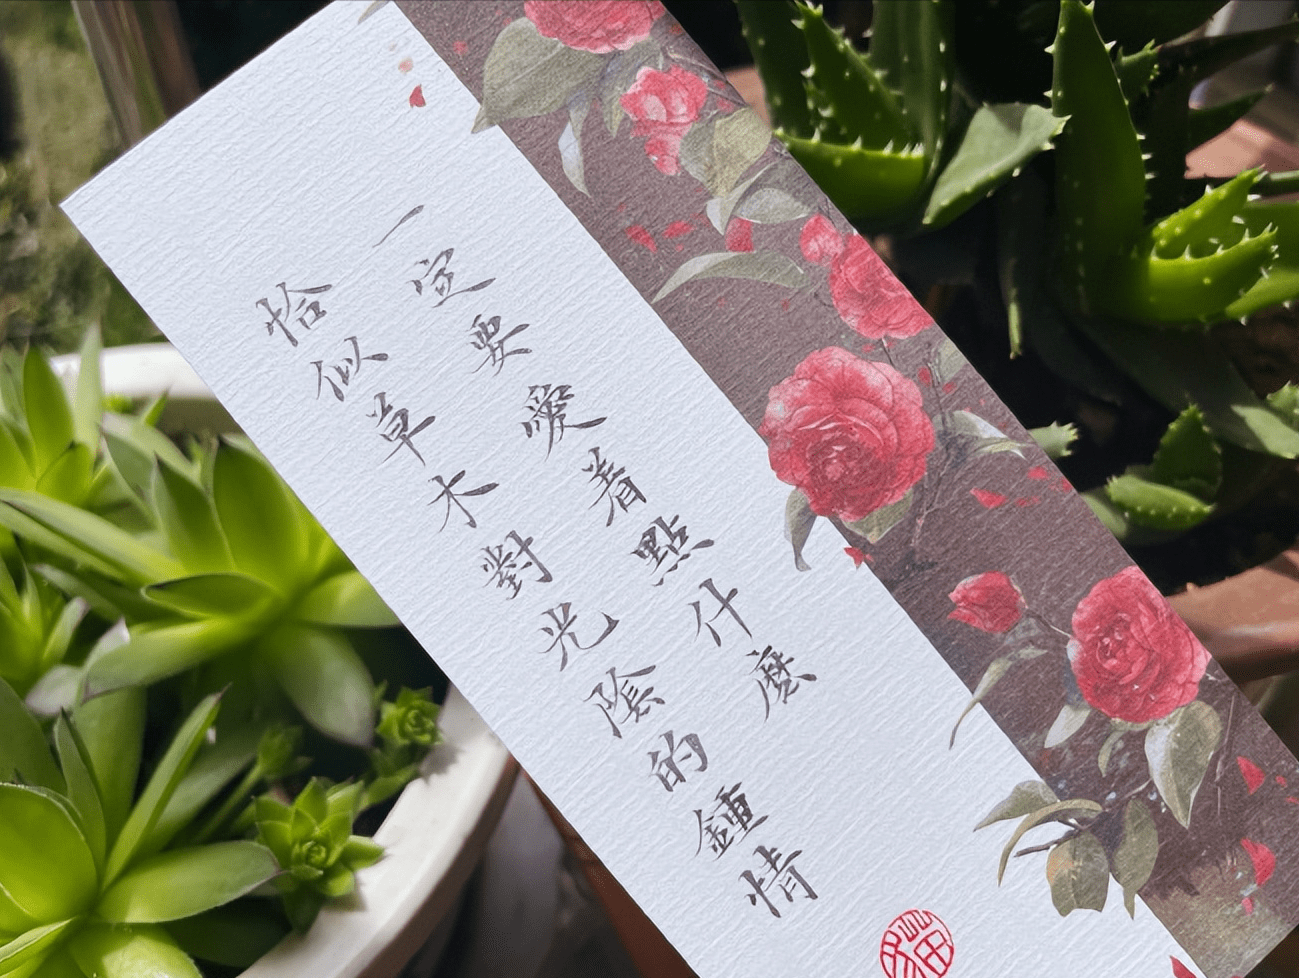 一定要愛着點什麼
恰似草木對光陰的鍾情